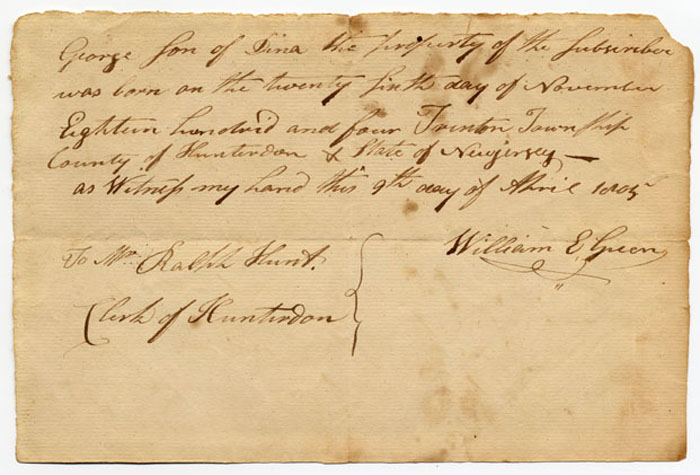 George Son of Dina the property of the Subscriber
was born on the twenty sinth day of November
Eighteen hundrid and four Trenton Township
County of Hunterdon & State of Newjersey
as Witness my hand this 9th day of April 1805
William E Green
To Mr. Ralph Hunt.
Clerk of Hunterdon